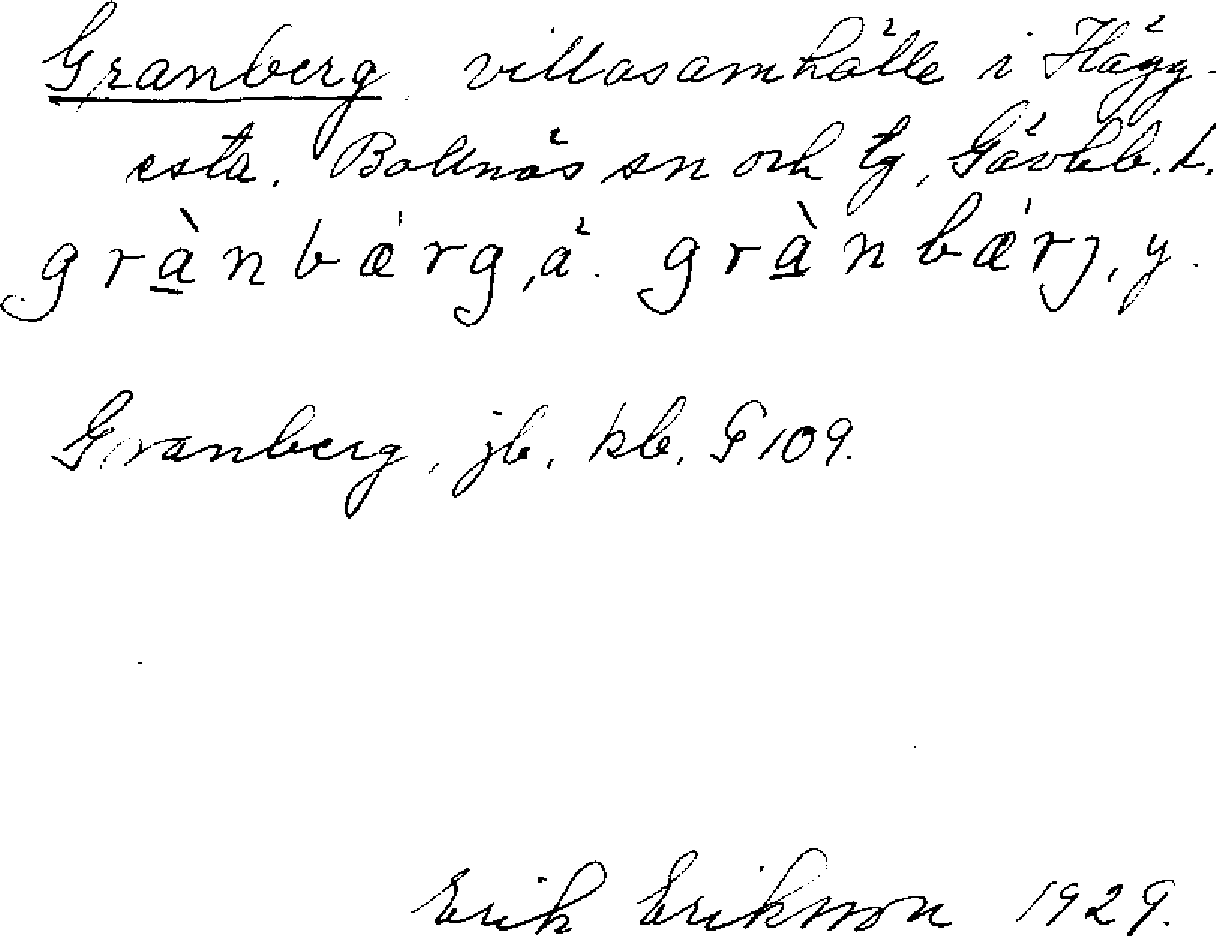 Granberg villasamhälle i Hägg-
esta. Bollnäs sn och tg, Gävleb. l.
grànbǽrg, ä. grànbǽrj, y.
Granberg, jb, kb. P 109.
Erik Eriksson 1929.